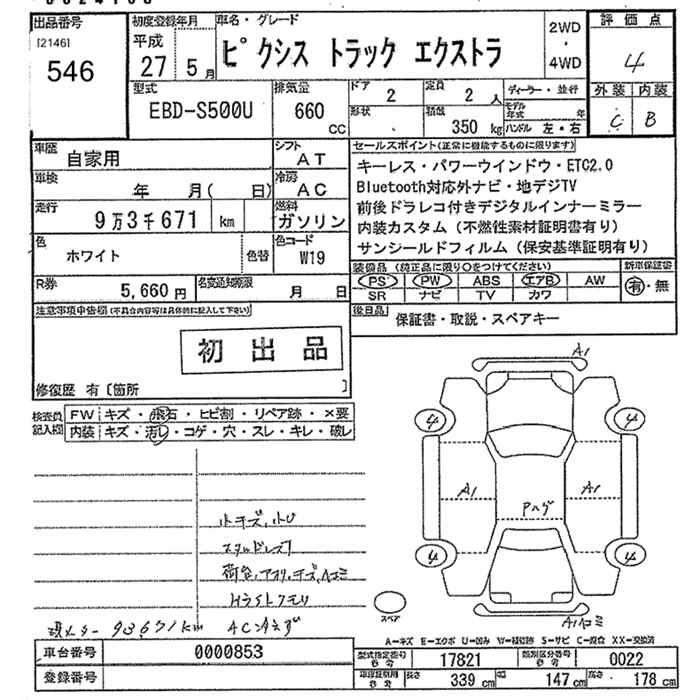 出品番号
[2146]
546
初度登録年月
平成
27年 5月
車名・グレード
ピクシス トラック エクストラ
2WD
・
4WD
評価点
4
型式
EBD-S500U
排気量
660
CC
ドア
2
定員
2人
形状
積載
350 kg
ディーラー・並行
モデル年式 年
ハンドル 左・右
外装 内装
C B
車歴
自家用
シフト
AT
車検
年 月( 日)
冷房
AC
走行
9万3千671 km
燃料
ガソリン
色
ホワイト
色替
色コード
W19
R券
5,660円
名変通知期限
月 日
セールスポイント(正常に機能するものに限ります)
キーレス・パワーウインドウ・ETC2.0
Bluetooth対応外ナビ・地デジTV
前後ドラレコ付きデジタルインナーミラー
内装カスタム(不燃性素材証明書有り)
サンシールドフィルム(保安基準証明有り)
装備品(純正品に限り○をつけてください)
PS PW ABS エアB AW
SR ナビ TV カワ
新車保証書
有・無
後日品
保証書・取説・スペアキー
注意事項申告欄(不具合内容等は具体的に記入して下さい)
初出品
修復歴 有〔箇所 〕
検査員記入欄
FW キズ・飛石・ヒビ割・リペア跡・×要
内装 キズ・汚レ・コゲ・穴・スレ・キレ・破レ
A1
4 4
A1 A1
Pハゲ
4 4
スペア
小キズ、小U
荷台、アオリ、キズ、ヘコミ
Hライトクモリ
現メター 93671km
A=キズ E=エクボ U=凹み W=補修跡 S=サビ C=腐食 XX=交換済
車台番号
0000853
登録番号
型式指定番号
参考
17821
類別区分番号
参考
0022
車庫証明用
参考
長さ
339 cm
幅
147 cm
高さ
178 cm